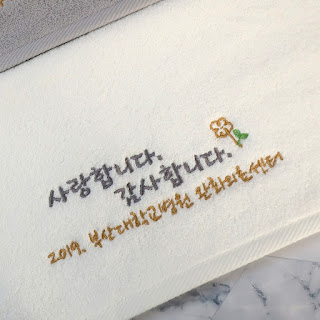 사랑합니다.
감사합니다.
2019. 부산대학교병원 완화의료센터